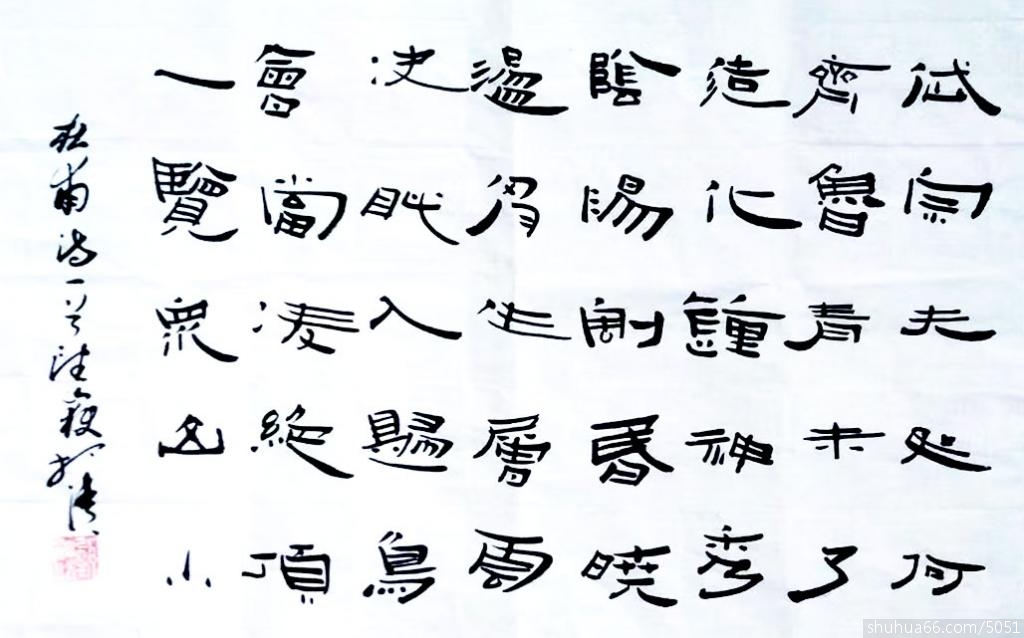 岱宗夫如何
齊魯青未了
造化鐘神秀
陰陽割昏曉
盪胷生層雲
決眥入歸鳥
會當凌絕頂
一覽眾山小
杜甫诗一首望嶽
shuhua66.com/5051